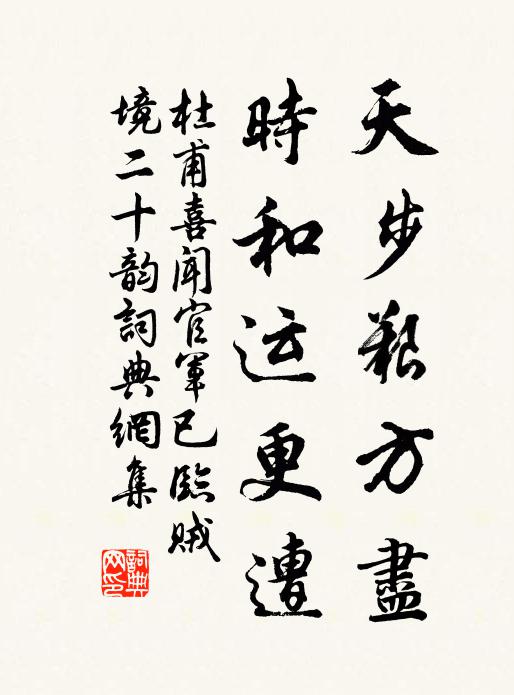 天步艱方盡
時和运更遭
杜甫喜聞官軍已臨賊
境二十韵詞典網集
詞典
网印